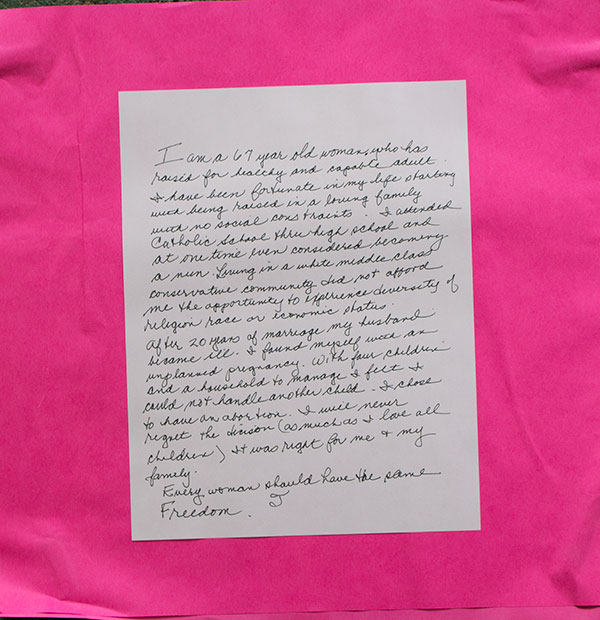 I am a 67 year old woman, who has
raised for healthy and capable adult.
I have been fortunate in my life starting
with being raised in a loving family
with no social constraints. I attended
Catholic School thru high school and
at one time even considered becoming
a nun. Living in a white middle class
conservative community did not afford
me the opportunity to experience diversity of
religion race or economic status.
After 20 years of marriage my husband
became ill. I found myself with an
unplanned pregnancy. With four children
and a household to manage I felt I
could not handle another child. I chose
to have an abortion. I will never
regret the decision (as much as I love all
children) It was right for me & my
family.
Every woman should have the same
Freedom.